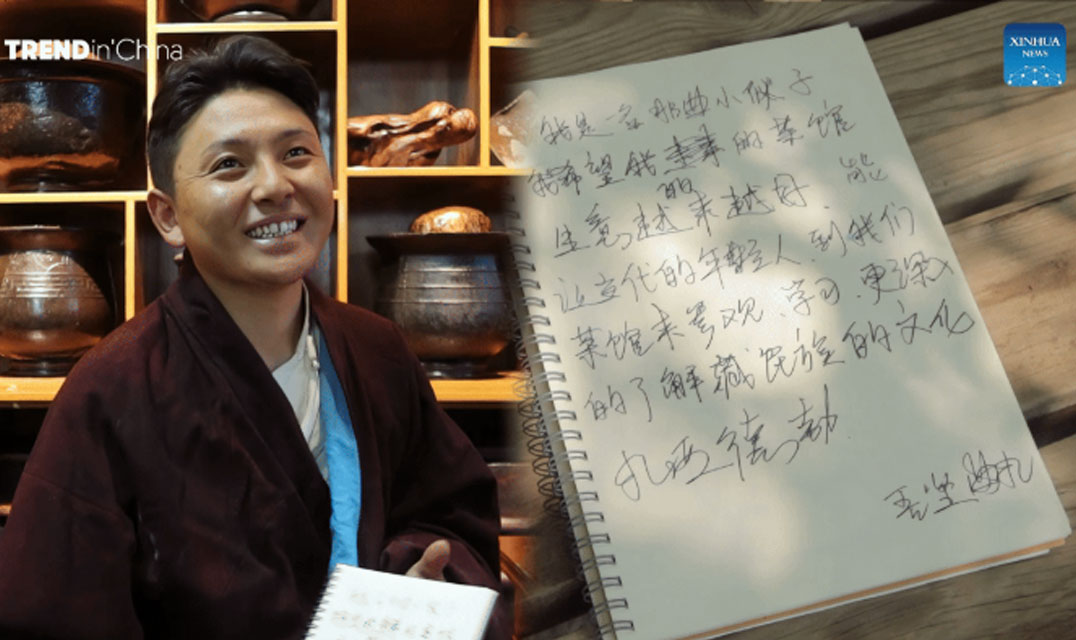 TREND in China
XINHUA
NEWS
我是 那曲小伙子
我希望我 的菜馆 能
生意的越来越好
让 代的年轻人 到我们
菜馆来参观、学习、更深入
的了解藏民族的文化
扎西德勒